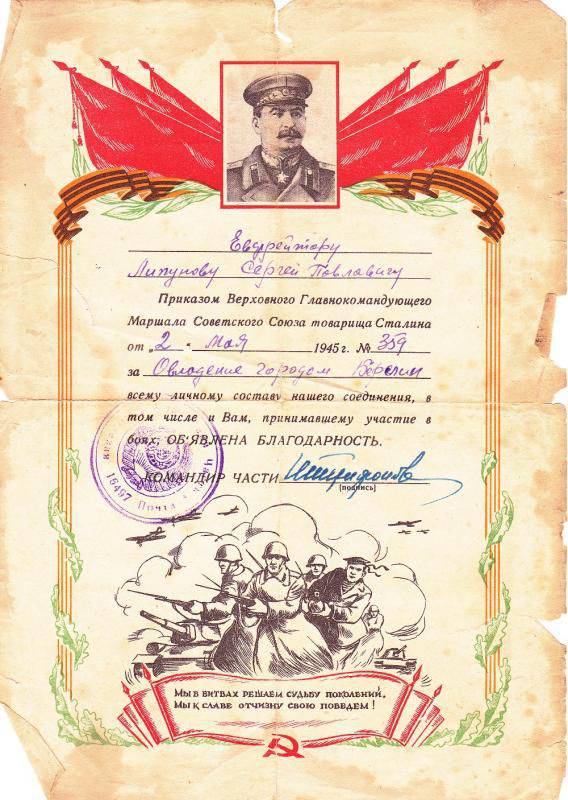 Евдрейтору
Липунову Сергей Повлавичу
Приказом Верховного Главнокомандующего
Маршала Советского Союза товарища Сталина
от „2 “ мая 1945 г. № 359
за Овладение городом Берлин
всему личному составу нашего соединения, в
том числе и Вам, принимавшему участие в
боях, ОБ'ЯВЛЕНА БЛАГОДАРНОСТЬ.
КОМАНДИР ЧАСТИ
(подпись)
16497 Почта
МЫ В БИТВАХ РЕШАЕМ СУДЬБУ ПОКОЛЕНИЙ,
МЫ К СЛАВЕ ОТЧИЗНУ СВОЮ ПОВЕДЕМ!